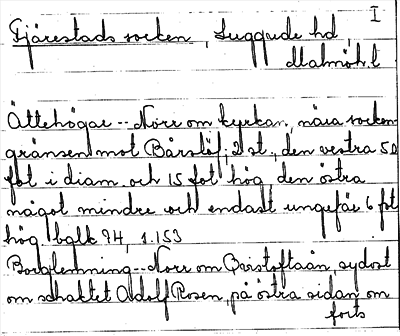 I
Fjärestads socken, Luggude hd,
Malmöh.l
Ättehögar -- Norr om kyrkan, nära socken
gränsen mot Bårslöf, 2 st., den vestra 50
fot i diam. och 15 fot hög, den östra
något mindre och endast ungefär 6 fot
hög balk 94, 1.153
Borglemning -- Norr om Råstoftaån, sydost
om schaktet Adolf Rosen, på östra sidan om
forts